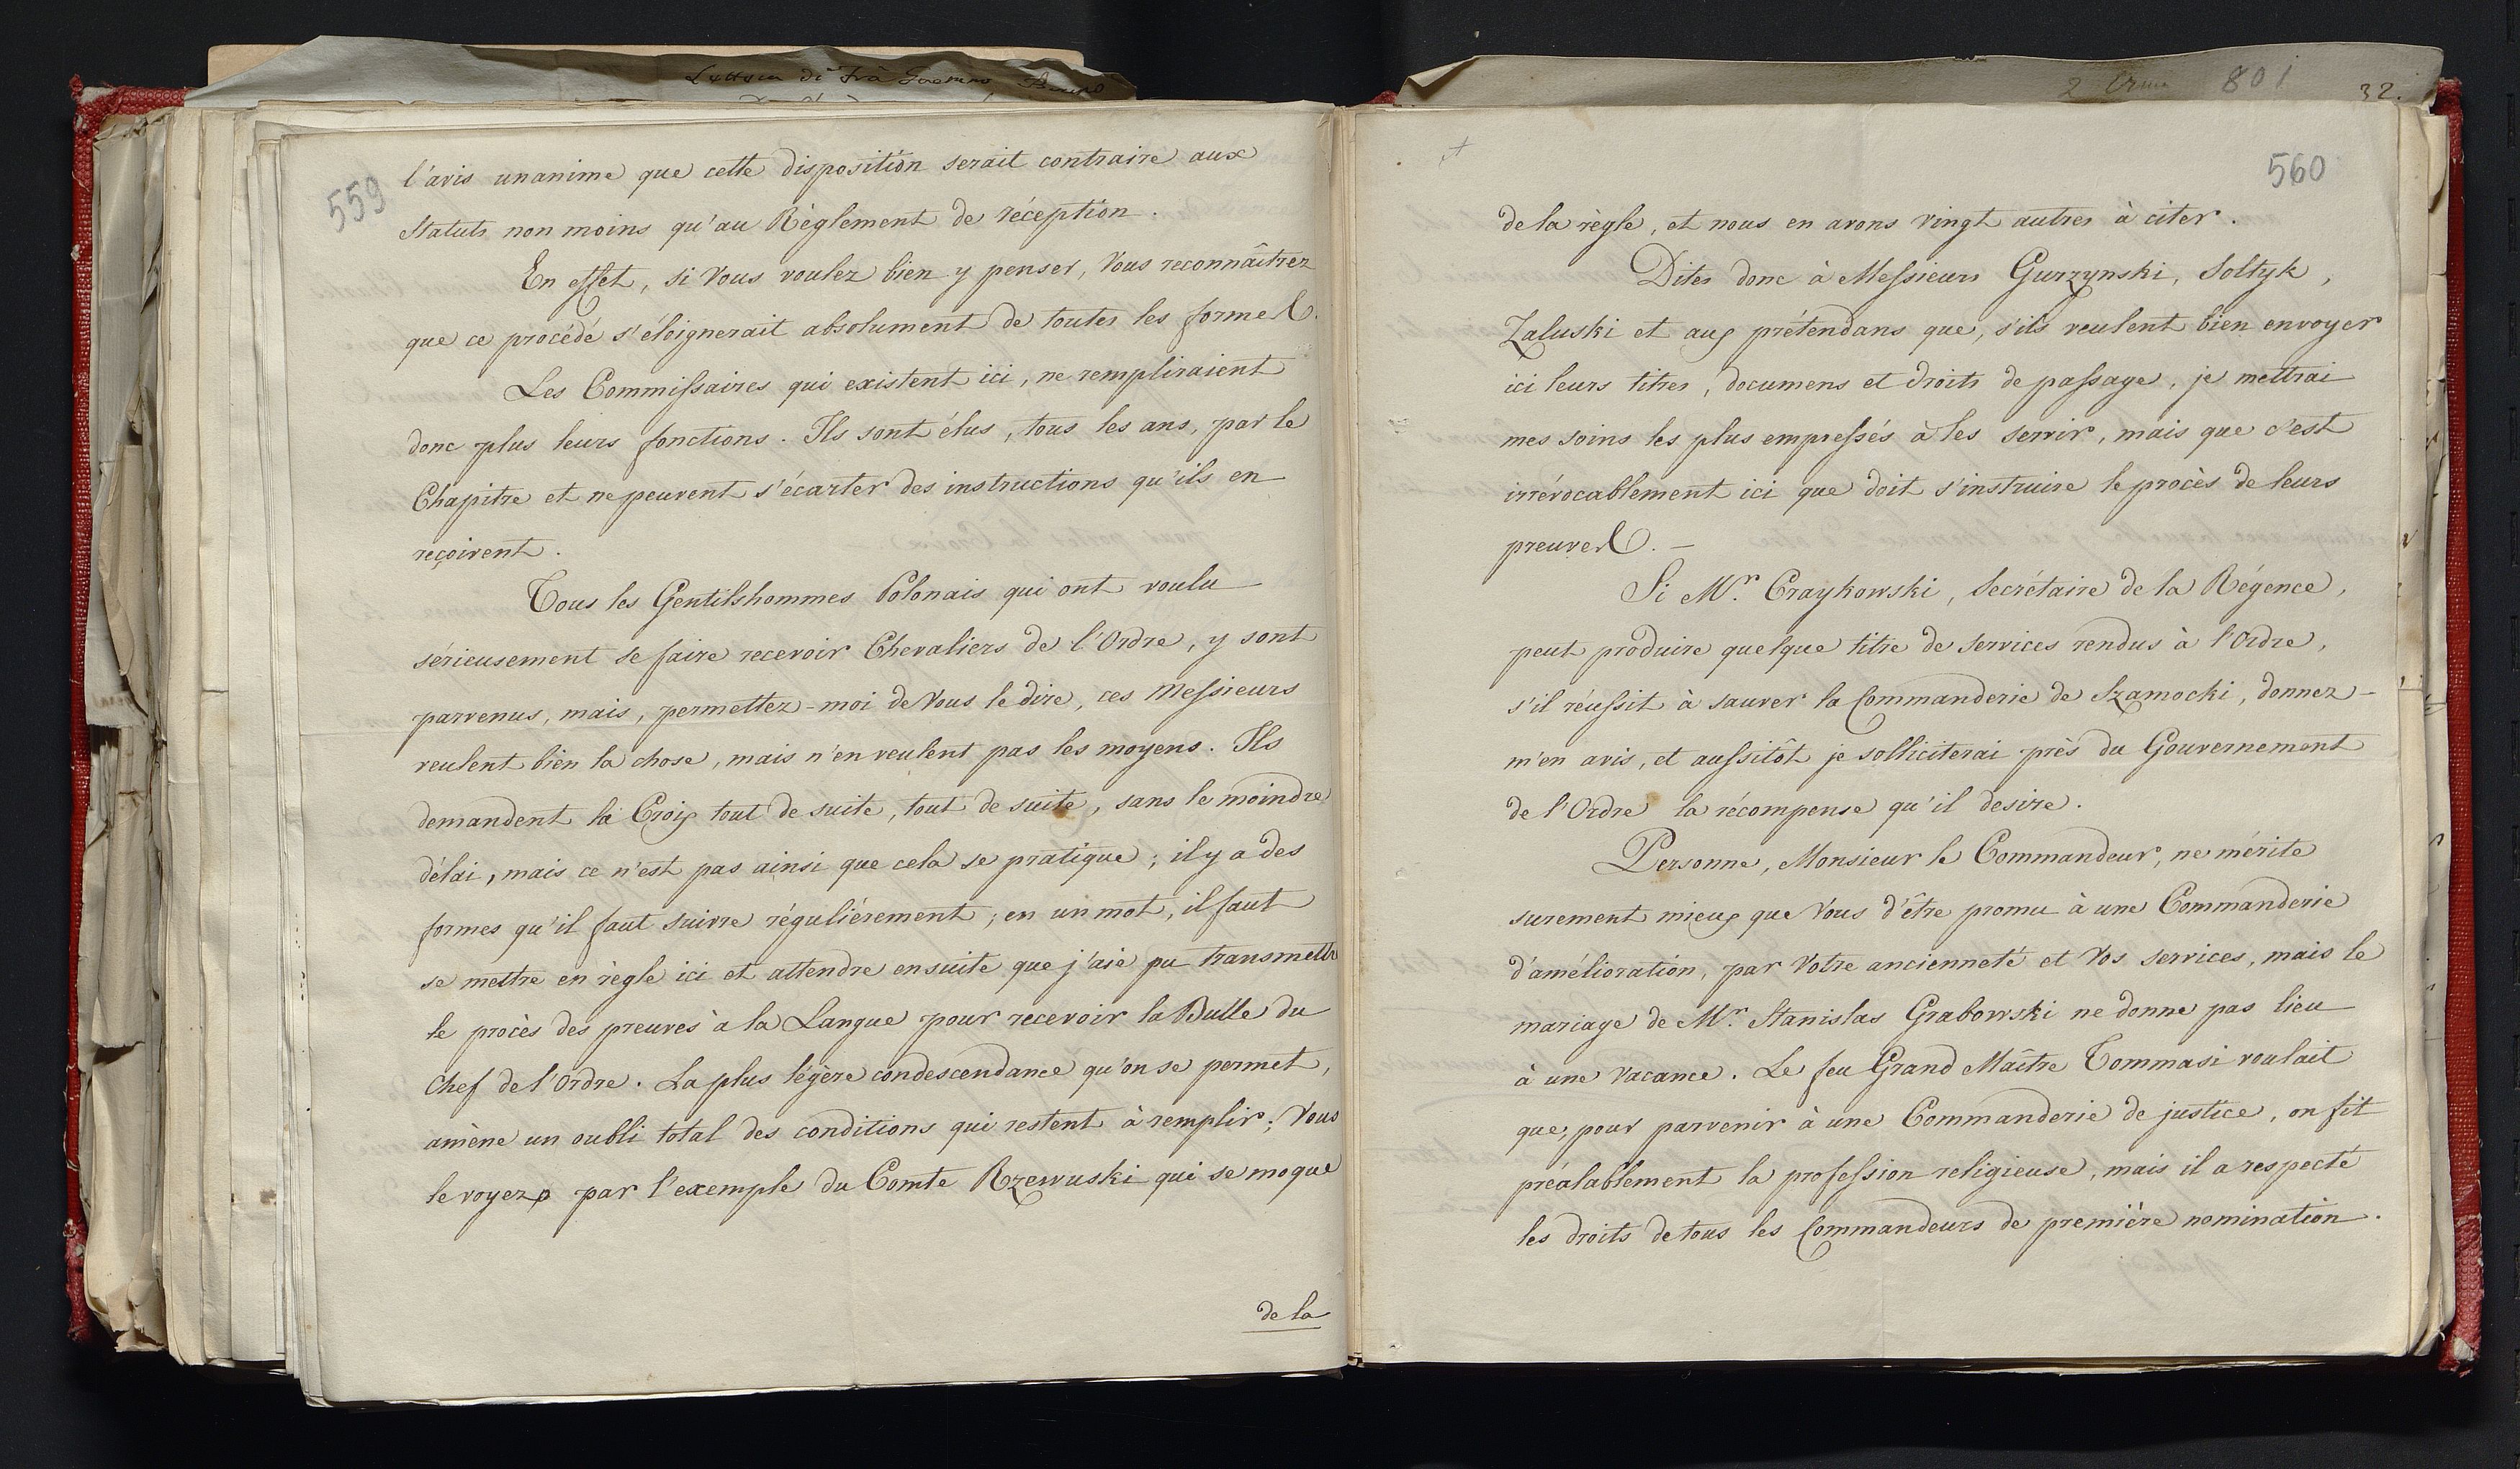 559
l'avis unanime que cette disposition serait contraire aux
Statuts non moins qu'au Règlement de réception.
En effet, si Vous voulez bien y penser, Vous reconnâitrez
que ce procédé s'éloignerait absolument de toutes les formes.
Les Commissaires qui existent ici, ne rempliraient
donc plus leurs fonctions. Ils sont élus, tous les ans, par le
Chapitre et ne peuvent s'écarter des instructions qu'ils en
reçoivent.
Tous les Gentilshommes Polonais qui ont voulu
sérieusement se faire recevoir Chevaliers de l'Ordre, y sont
parvenus, mais, permettez-moi de Vous le dire, ces Messieurs
veulent bien la chose, mais n'en veulent pas les moyens. Ils
demandent la Croix tout de suite, tout de suite, sans le moindre
délai, mais ce n'est pas ainsi que cela se pratique; il y a des
formes qu'il faut suivre réguliérement; en un mot, il faut
se mettre en règle ici et attendre ensuite que j'aie pu transmettre
le procès des preuves à la Langue pour recevoir la Bulle du
Chef de l'Ordre. La plus légère condescendance qu'on se permet,
amène un oubli total des conditions qui restent à remplir; Vous
le voyez par l'exemple du Comte Rzewuski qui se moque
de la
801
32.
560
de la règle, et nous en avons vingt autres à citer.
Dites donc à Messieurs Gurzynski, Soltyk,
Zaluski et aux prétendans que, s'ils veulent bien envoyer
ici leurs titres, documens et droits de passage, je mettrai
mes soins les plus empressés à les servir, mais que c'est
irrévocablement ici que doit s'instruire le procès de leurs
preuves. —
Si Mr. Craykowski, Secrétaire de la Régence,
peut produire quelque titre de services rendus à l'Ordre,
s'il réussit à sauver la Commanderie de Szamocki, donnez-
m'en avis, et aussitôt je solliciterai près du Gouvernement
de l'Ordre la récompense qu'il desire.
Personne, Monsieur le Commandeur, ne mérite
surement mieux que Vous d'être promu à une Commanderie
d'amélioration, par Votre ancienneté et Vos services, mais le
mariage de Mr. Stanislas Grabowski ne donne pas lieu
à une vacance. Le feu Grand Maître Tommasi voulait
que, pour parvenir à une Commanderie de justice, on fit
préalablement la profession religieuse, mais il a respecté
les droits de tous les Commandeurs de première nomination.